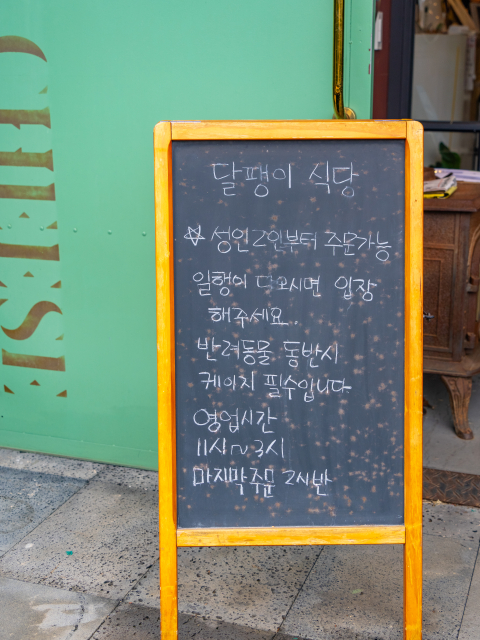 달팽이 식당
☆ 성인2인부터 주문가능
일행이 다오시면 입장
해주세요..
반려동물 동반시
케이지 필수입니다
영업시간
11시~3시
마지막주문 2시반
CHEESE